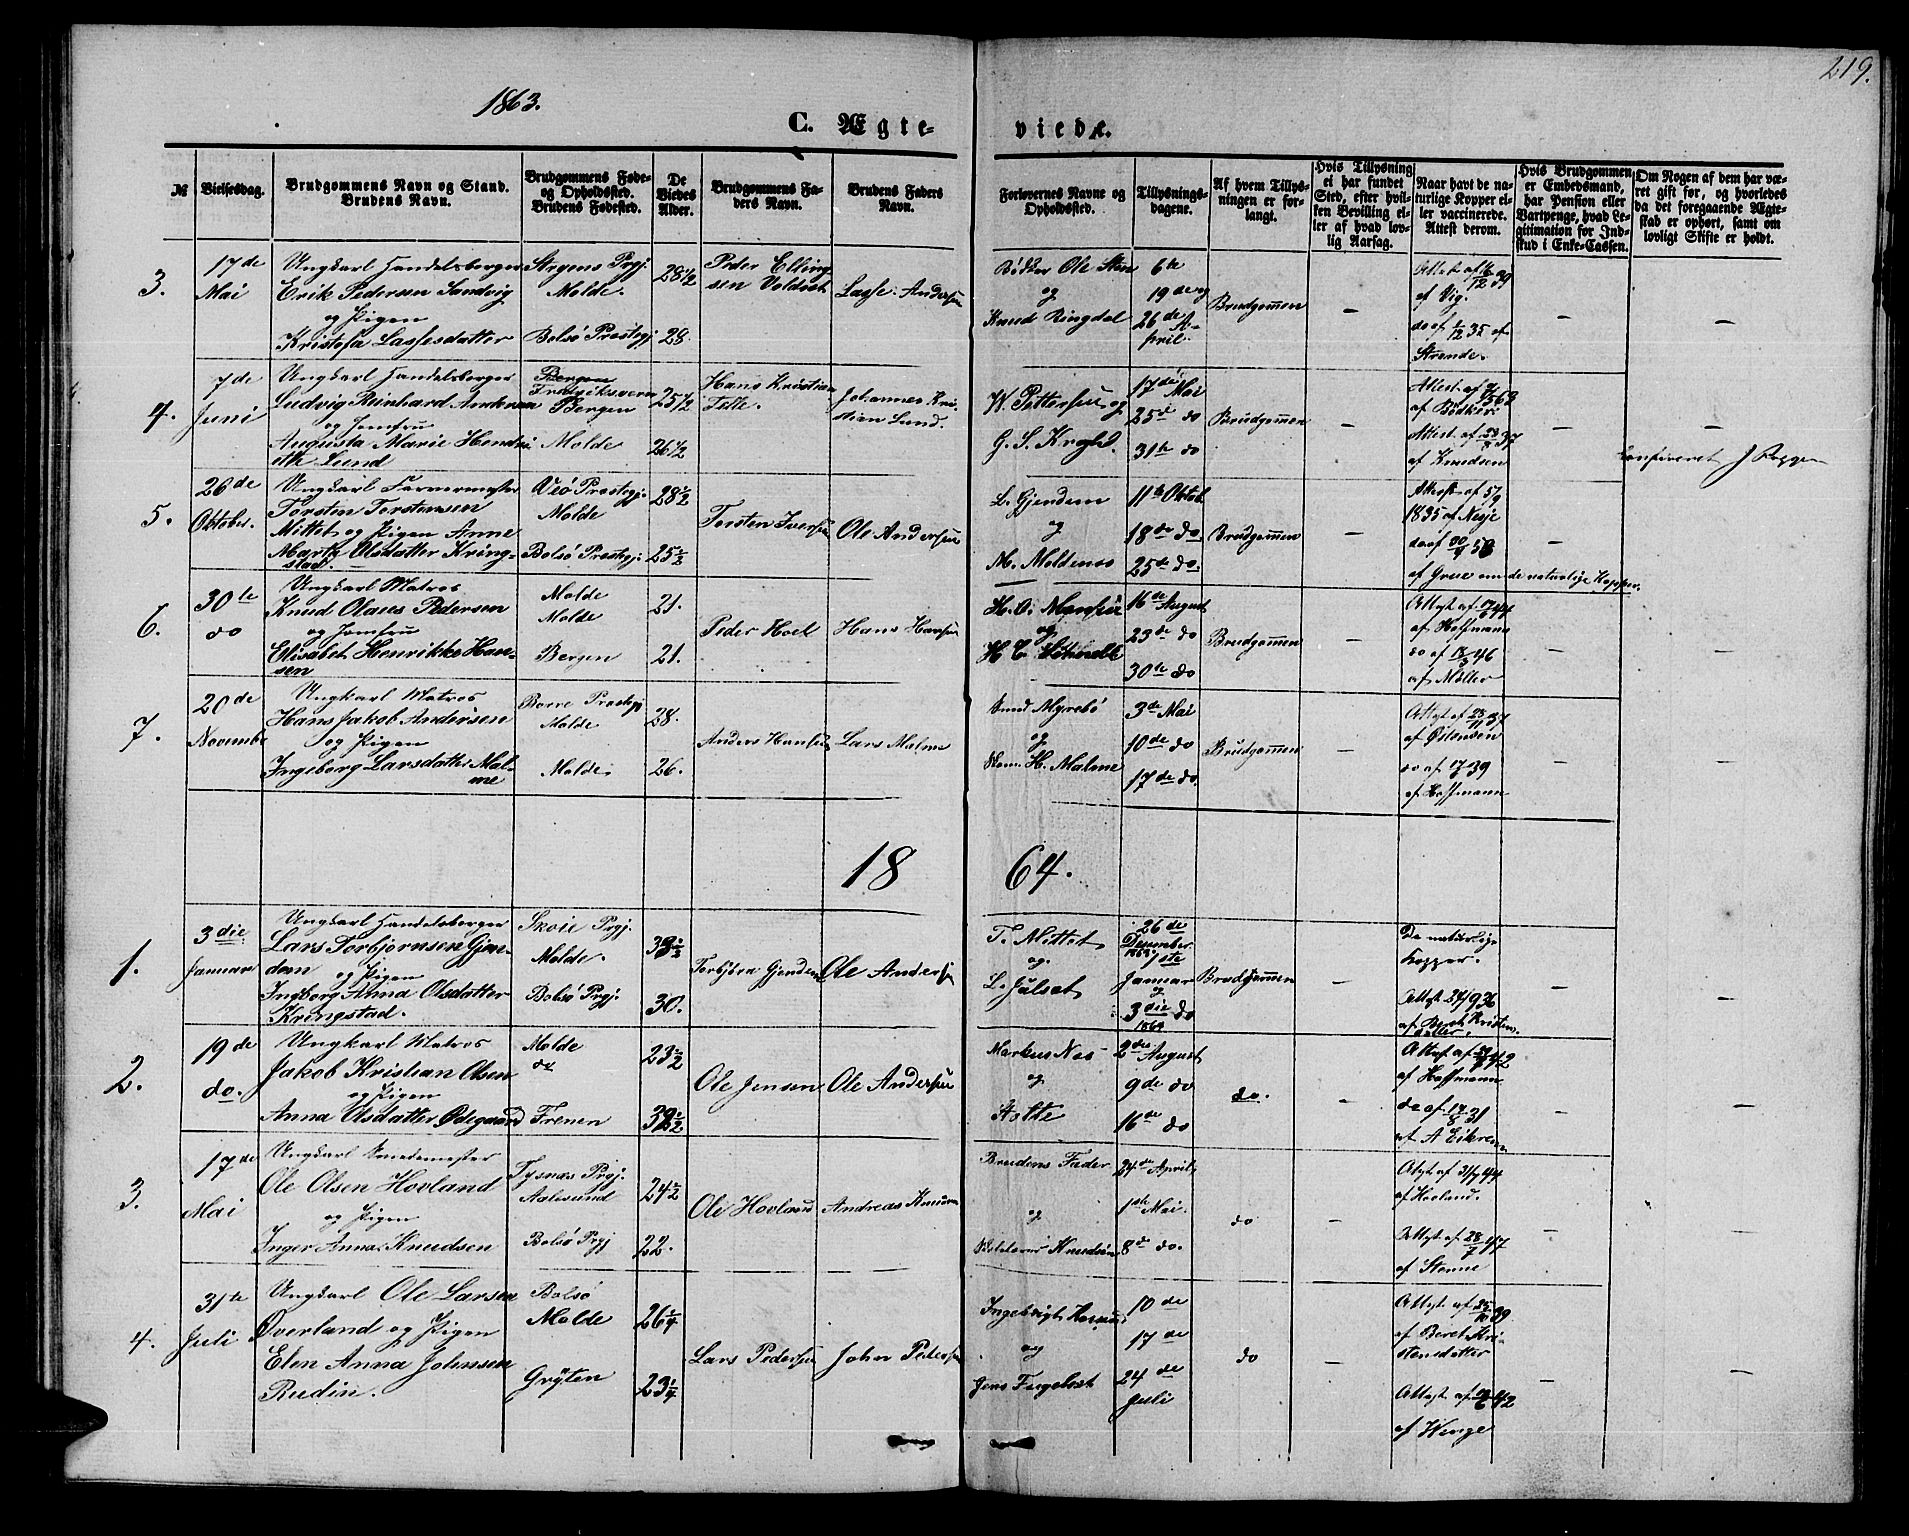 219.
1863.
C. Ægte-
viede.
№
Vielsesdag.
Brudgommens Navn og Stand.
Brudens Navn.
Brudgommens Føde-
og Opholdssted.
Brudens Fødested.
De
Viedes
Alder.
Brudgommens Fa-
ders Navn.
Brudens Faders
Navn.
Forlovernes Navne og
Opholdssted.
Tillysnings-
dagene.
Af hvem Tillys-
ningen er for-
langt.
Hvis Tillysning
ei har fundet
Sted, efter hvil-
ken Bevilling el-
ler af hvad lov-
lig Aarsag.
Naar havt de na-
turlige Kopper el-
ler vaccinerede.
Attest derom.
Hvis Brudgommen
er Embedsmand,
har Pension eller
Vartpenge, hvad Le-
gitimation for Ind-
skud i Enke-Cassen.
Om Nogen af dem har væ-
ret gift før, og hvorledes
da det foregaaende Ægte-
skab er ophørt, samt om
lovligt Skifte er holdt.
3.
17de
Mai
Ungkarl Handelsborger
Erik Pedersen Sandvig
og Pigen
Kristofa Lassesdatter
Prgj.
Molde.
Bolsø Prestegj
28 1/2
28.
Peder Elling
sen
Lasse Andersen
Bødker Ole Sten
og
Knud Ringdal
6te
19de og
26de A-
pril.
Brudgommen
–
Attest af 16/12 39
af Vig.
do af 35 af
Strande.
–
–
4.
7de
Juni
Ungkarl Handelsborger
Ludvig Reinhard Andersen
og Jomfru
Augusta Marie Hendri-
ette Lund
Bergen
Fredriksvern
Bergen
Molde
25 1/2
26 1/2
Hans Kristian
Johannes Kri-
stian Lund.
W. Pettersen og
G. S.
17de Mai
25de do
31te do
Brudgommen
–
Attest af
af Bødker
Attest af 37
af Knudsen
–
–
5.
26de
Oktober.
Ungkarl Farvermester
Torsten Torstensen
Mittet og Pigen Anne
Marta Olsdatter Kring-
stad.
Veø Prestegj.
Molde
Bolsø Prestegj.
28 1/2
25 1/2
Torsten Iversen
Ole Andersen
L. Gjendem
og
M. Moldenæs
11te Oktob.
18de do
25de do.
Brudgommen
–
Attest af 5/9
1835 af Nesje
do af
af Grue om de naturlige Kopper.
–
6.
30te
do
Ungkarl Matros
Knud Olaus Pedersen
og Jomfru
Elisabet Henrikke Han-
sen
Molde
Molde
Bergen
21.
21.
Peder Hoel
Hans Hansen
H. O. Hansen
og
H. C.
16de August
23de do
30te do
Brudgommen
–
Attest af
af Hoffmann
do af 46
af Møller
–
7.
20de
Novembe
Ungkarl Matros
Hans Jakob Andersen
og Pigen
Ingeborg Larsdatter Mal-
me
Borre Prestegj
Molde
Molde
28.
26.
Anders Hansen
Lars Malme
Myrebø
og
H. Malme
3de Mai
10de do
17de do.
Brudgommen
–
Attest af 37
af Østensen
do af 17/ 39
af Hoffmann
–
1864.
1.
3die
Januar
Ungkarl Handelsborger
Lars Torbjørnsen Gjen-
dem og Pigen
Ingborg Anna Olsdatter
Kringstad.
Prgj.
Molde.
Bolsø Prgj.
30.
Torbjörn Gjendem
Ole Andersen
T. Mittet
og
L. Julset
26de
December
1863 1ste
Januar
og
3die do
1864
Brudgommen
–
De naturlige
Kopper.
Attest 24/9 36
af Beret Kristens-
datter.
–
–
2.
19de
do.
Ungkarl Matros
Jakob Kristian Olsen
og Pigen
Anna Olsdatter Ødegaard
Molde
do
Frenen
23 1/2
Ole Jensen
Ole Andersen
Markus Næs
og
2den August
9de do
16de do
do.
–
Attest af 42
af Hoffmann
do af 14/8 31
af A Eikrem
–
–
3.
17de
Mai
Ungkarl Smedemester
Ole Olsen Hovland
og Pigen
Inger Anna Knudsen
Tysnæs Prgj.
Aalesund
Bolsø Prgj
24 1/2
22.
Ole Hovland
Andreas Knudsen
Brudens Fader
og
Knudsen
24de April
1ste Mai.
8de do.
do
–
Attest af 31/7 44
af Hovland.
Attest af 28/7 47
af Stenne
–
–
4.
31te
Juli
Ungkarl Ole Larsen
Øverland og Pigen
Elen Anna Johnsen
Rudin.
Bolsø
Molde
Gryten
26 1/4
23 1/4
Lars Pedersen
John Pedersen
Ingebrigt
og
Jens Fugelset
10de
17de
24de
Juli
do
–
Attest af 39
af Beret Kri-
stensdatter
Attest af 42
af Winge
–
–